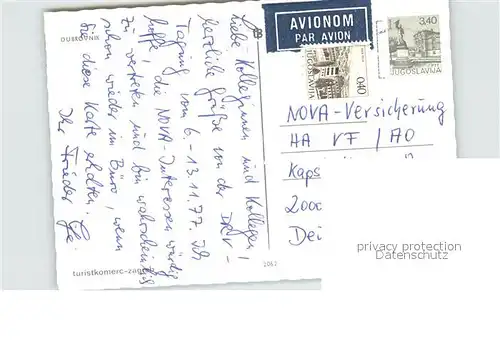 DUBROVNIK
AVIONOM
PAR AVION
0.40
JUGOSLAVIJA
3.40
JUGOSLAVIJA
Liebe Kolleginnen und Kollegen!
herzliche Grüße von der
Tagung vom 6.-13.11.77. Ich
hoffe, die NOVA-Interessen würdig
zu vertreten und bin wahrscheinlich
schon wieder im Büro, wenn
Sie diese Karte erhalten.
Ihr
NOVA-Versicherung
HA VF / AO
Kaps
2000
turistkomerc-zagreb
2062
privacy protection
Datenschutz